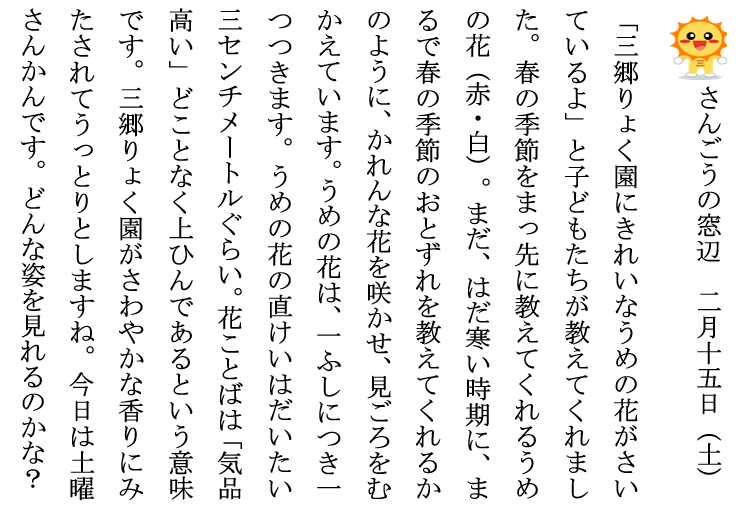 さんごうの窓辺　二月十五日（土）
「三郷りょく園にきれいなうめの花がさい
ているよ」と子どもたちが教えてくれまし
た。春の季節をまっ先に教えてくれるうめ
の花（赤・白）。まだ、はだ寒い時期に、ま
るで春の季節のおとずれを教えてくれるか
のように、かれんな花を咲かせ、見ごろをむ
かえています。うめの花は、一ふしにつき一
つつきます。うめの花の直けいはだいたい
三センチメートルぐらい。花ことばは「気品
高い」どことなく上ひんであるという意味
です。三郷りょく園がさわやかな香りにみ
たされてうっとりとしますね。今日は土曜
さんかんです。どんな姿を見れるのかな？